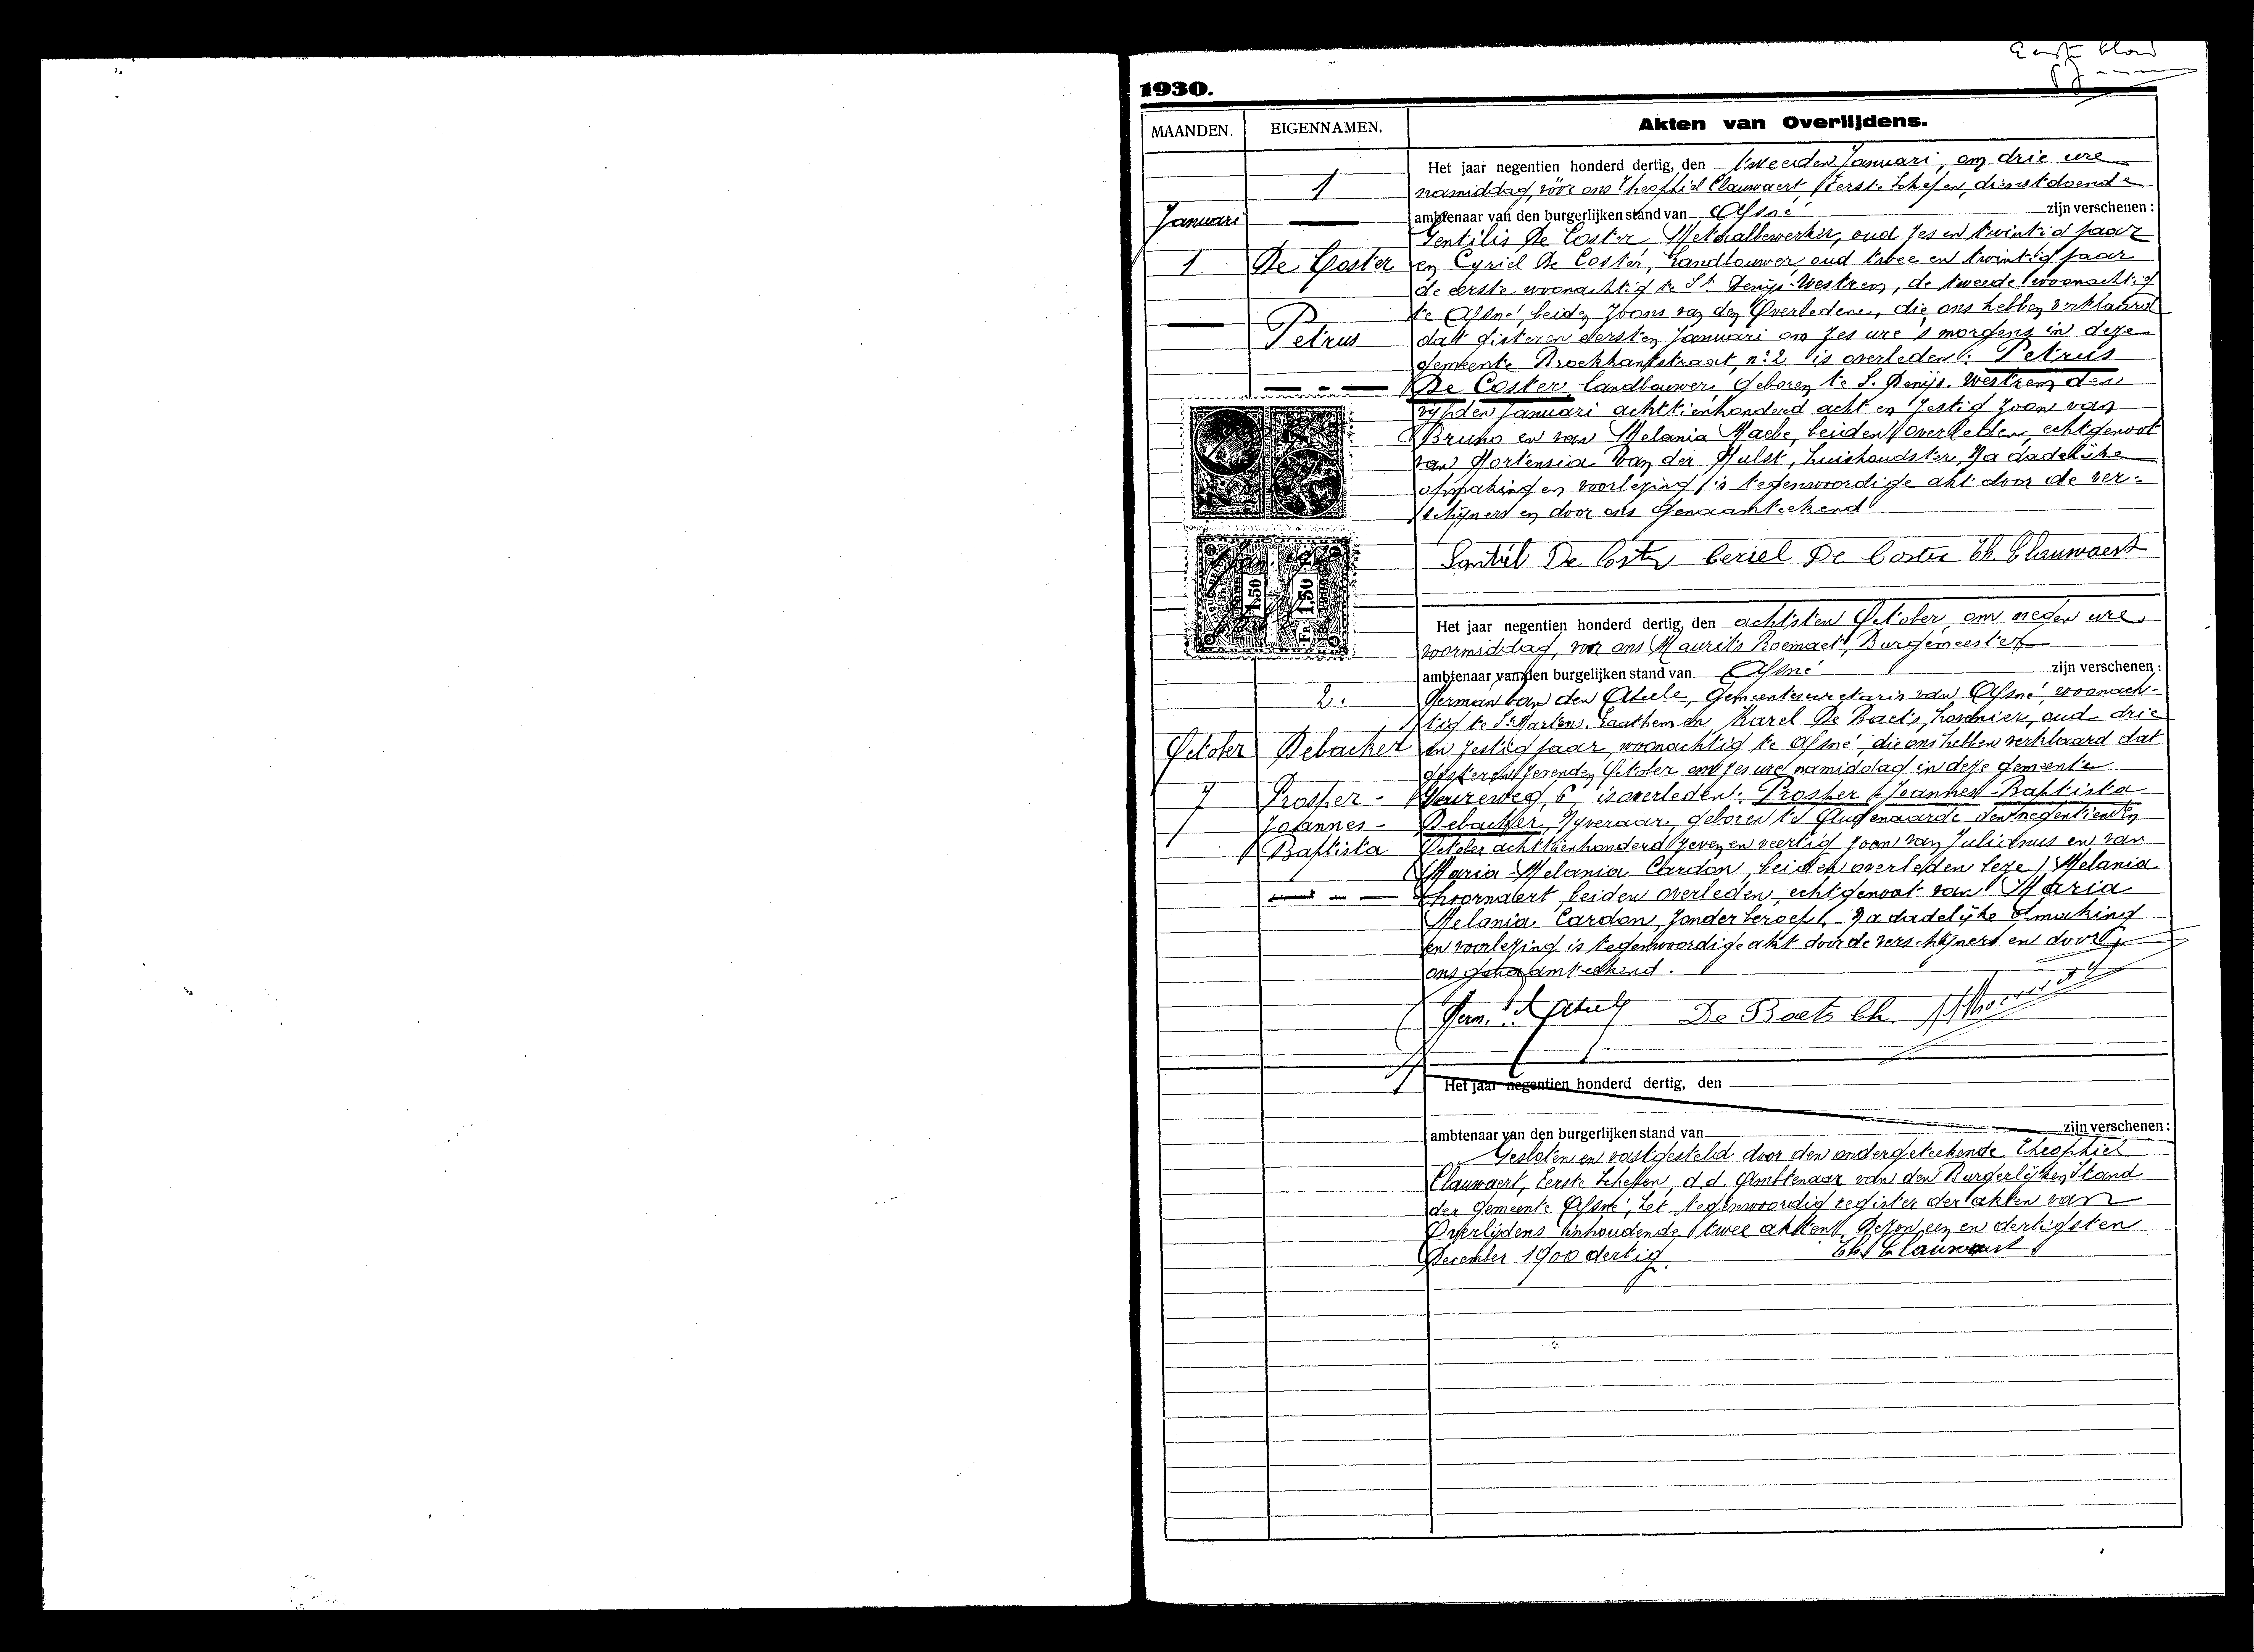 Eerste blad
1930.
MAANDEN. EIGENNAMEN. Akten van Overlijdens.
1
Januari
1 De Coster
Petrus
Het jaar negentien honderd dertig, den tweeden Januari, om drie ure
namiddag, vóór ons Theophiel Clauwaert Eerste Schepen, dienstdoende
ambtenaar van den burgerlijken stand van Afsné zijn verschenen :
Gentilis De Coster, Metaalbewerker, oud zes en twintig jaar
en Cyriel De Coster, Landbouwer oud twee en twintig jaar
de eerste woonachtig te St Denijs-Westrem, de tweede woonachtig
te Afsné, beiden zoons van den Overledene, die ons hebben verklaard
dat gisteren eersten Januari om zes ure 's morgens in deze
gemeente Broekkantstraat, n: 2 is overleden: Petrus
De Coster, landbouwer, geboren te S. Denijs. Westrem den
vijfden Januari achttienhonderd acht en zestig zoon van
Bruno en van Melania Maebe, beiden overleden, echtgenoot
van Hortensia Van der Hulst, huishoudster. Na dadelijke
opmaking en voorlezing is tegenwoordige akt door de ver-
schijners en door ons genaamteekend
Gentiel De Coster Ceriel De Coster Th. Clauwaert
1,50 Fr 1,50
2.
October Debacker
7 Prosper -
Joannes -
Baptista
Het jaar negentien honderd dertig, den achtsten October, om negen ure
voormiddag, voor ons Maurits Roemaet, Burgemeester
ambtenaar van den burgelijken stand van Afsné zijn verschenen :
German van den Abeele, Gemeentesecretaris van Afsné woonach-
tig te St Martens. Laathem en Karel De Baets, hovenier, oud drie
en zestig jaar, woonachtig te Afsné, die ons hebben verklaard dat
gisteren zevenden October om zes ure namiddag in deze gemeente
6 is overleden: Prosper Joannes-Baptista
Debacker, Nyveraar, geboren te Audenaarde den negentienden
October achttienhonderd zeven en veertig zoon van Julianus en van
Maria-Melania Cardon, beiden overleden leze Melania
Thoornaert, beiden overleden, echtgenoot van Maria
Melania Cardon, zonder beroep. Na dadelijke opmaking
en voorlezing is tegenwoordige akt door de verschijners en door
ons genaamteekend.
De Baets Ch.
Het jaar negentien honderd dertig, den
ambtenaar van den burgerlijken stand van zijn verschenen :
Gesloten en vastgesteld door den ondergeteekende Theophiel
Clauwaert, Eerste Schepen, d.d. Ambtenaar van den Burgerlijken Stand
der Gemeente Afsné, het tegenwoordig register der akten van
Overlijdens inhoudende twee akten, dezen een en dertigsten
December 1900 dertig.
Th. Clauwaert